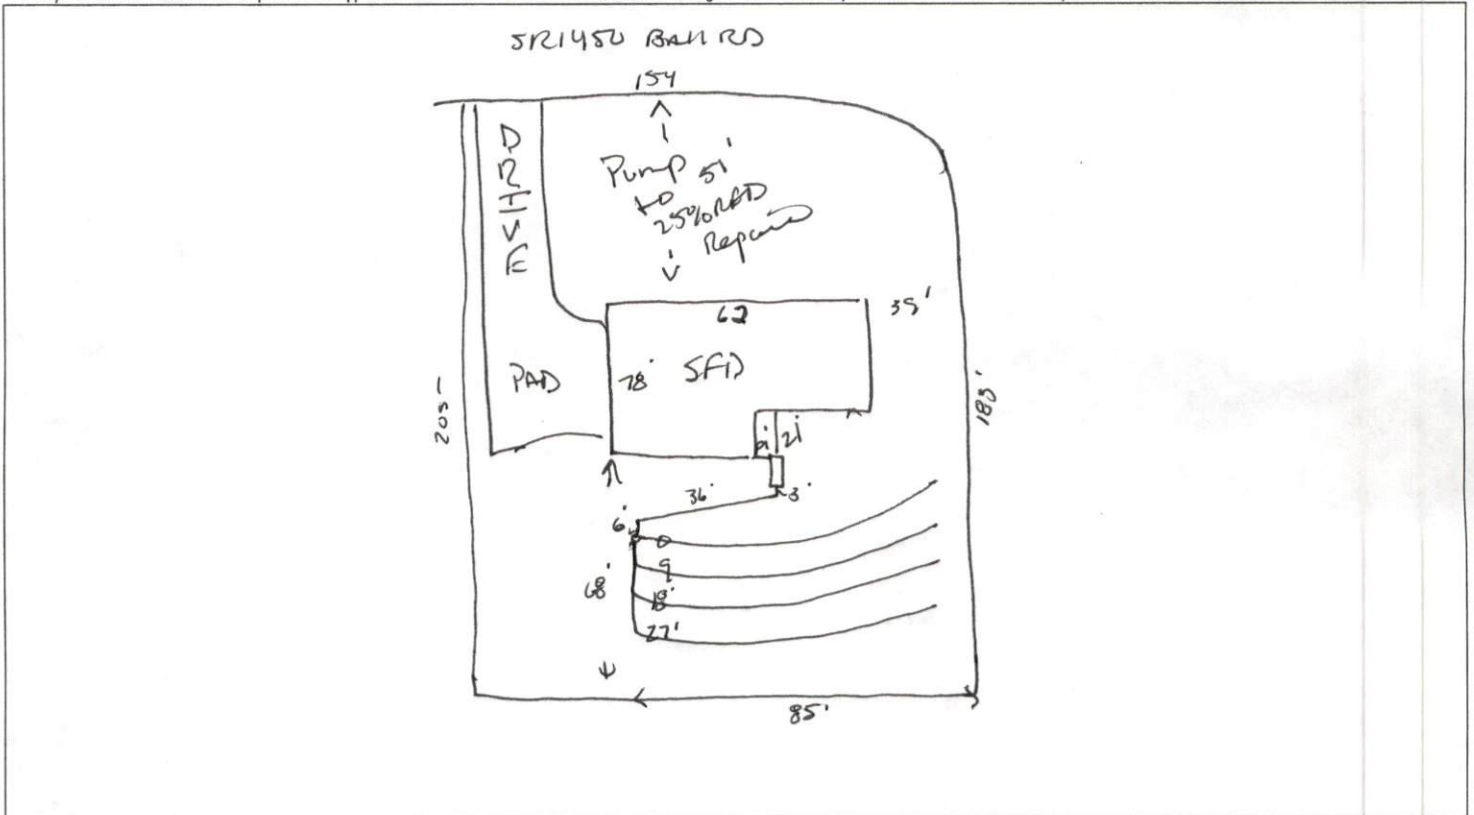 SR1450 Ball RD
154
DRIVE
Pump 51'
to
25% RED
Repair
62
39'
PAD
78'
SFD
205
183'
21
36'
3'
6'
0
9
68'
18'
27'
85'